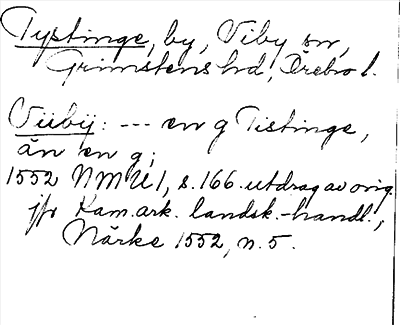 Tystinge, by, Viby sn,
Grimstens hd, Örebro l.
Viibij: --- en g Tistinge,
än en g;
1552 NMU 1, s. 166. utdrag av orig.
jfr Kam.ark. landsk.-handl.,
Närke 1552, n. 5.